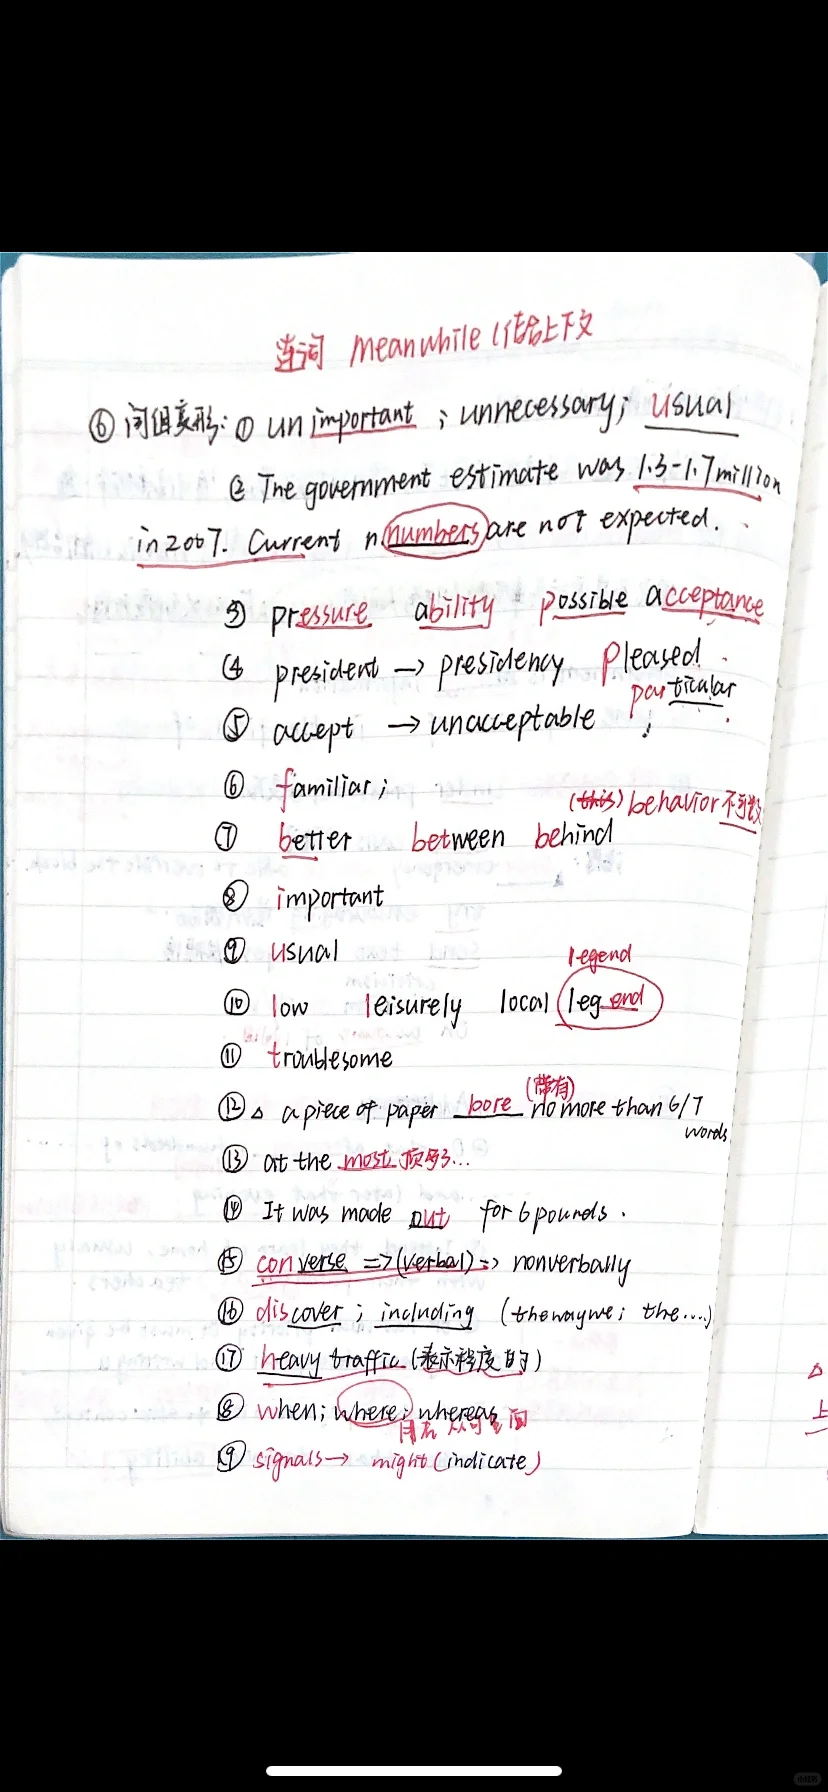 连词 Meanwhile 结合上下文
⑥ 词组变形: ① unimportant ; unnecessary; usual
② The government estimate was 1.3-1.7 million
in 2007. Current n numbers are not expected.
③ pressure ability possible acceptance
④ president → presidency pleased
particular
⑤ accept → unacceptable ;
⑥ familiar;
(this) behavior 不可数
⑦ better between behind
⑧ important
⑨ usual
legend
⑩ low leisurely local legend
⑪ troublesome
(带有)
⑫ △ a piece of paper bore no more than 6/7
words
⑬ at the most 顶多...
⑭ It was made out for 6 pounds.
⑮ converse => (verbal) => nonverbally
⑯ discover ; including (the way we; the....)
⑰ heavy traffic (表示程度的)
⑱ when; where; whereas
⑲ signals → might (indicate)
△
上
小红书